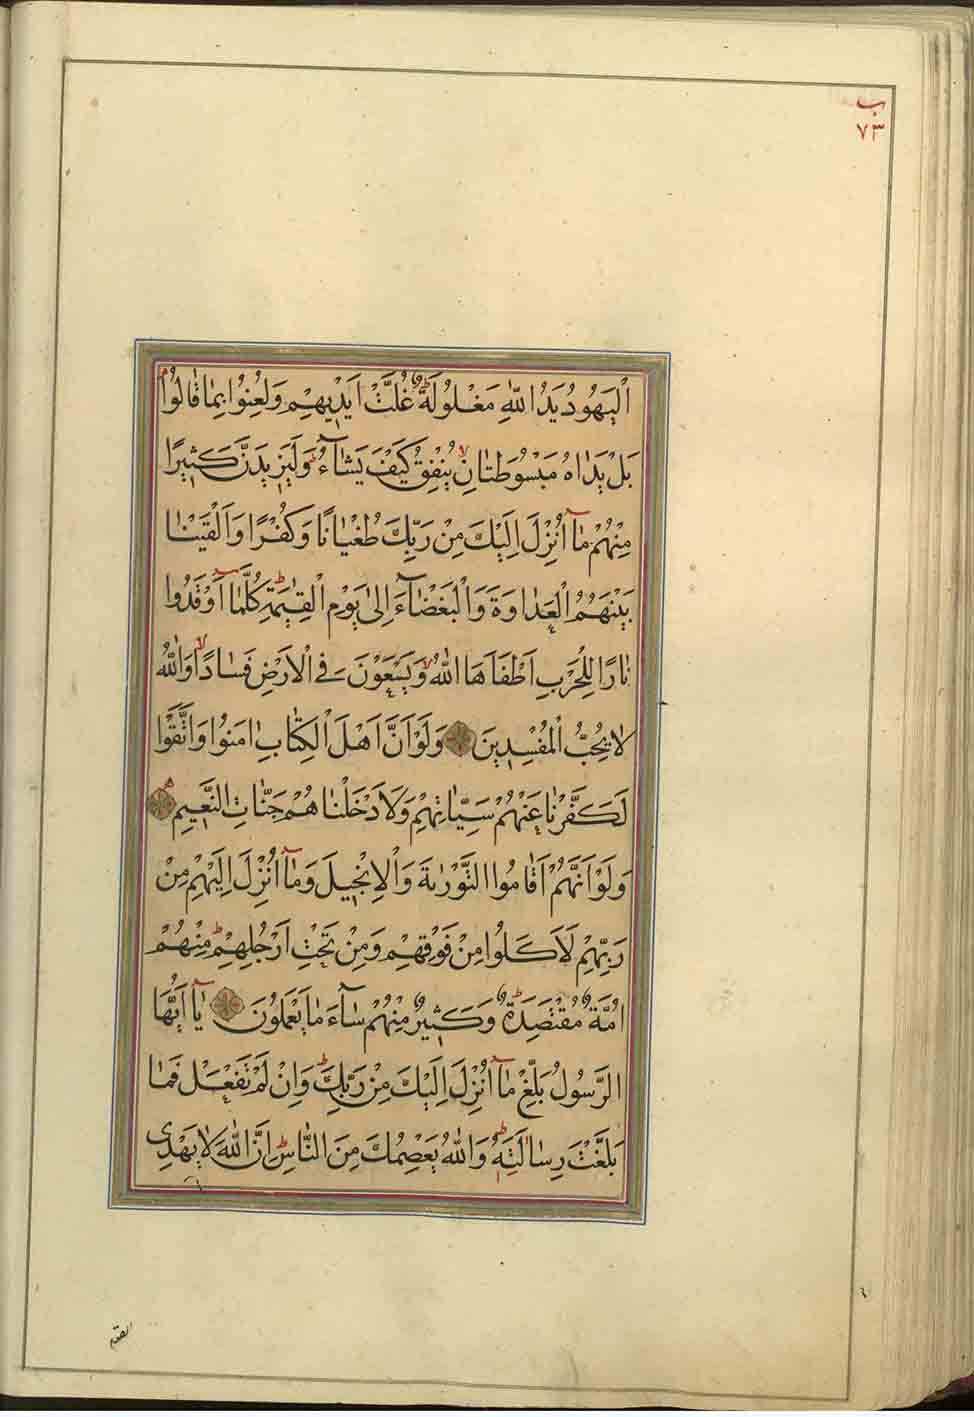 ب
٧٣
الْيَهُودُ يَدُ اللّٰهِ مَغْلُولَةٌ غُلَّتْ اَيْدِيهِمْ وَلُعِنُوا بِمَا قَالُوا
بَلْ يَدَاهُ مَبْسُوطَتَانِ يُنْفِقُ كَيْفَ يَشَآءُ وَلَيَزِيدَنَّ كَثِيرًا
مِنْهُمْ مَآ اُنْزِلَ اِلَيْكَ مِنْ رَبِّكَ طُغْيَانًا وَكُفْرًا وَاَلْقَيْنَا
بَيْنَهُمُ الْعَدَاوَةَ وَالْبَغْضَآءَ اِلىٰ يَوْمِ الْقِيٰمَةِ كُلَّمَآ اَوْقَدُوا
نَارًا لِلْحَرْبِ اَطْفَاَهَا اللّٰهُ وَيَسْعَوْنَ فِي الْاَرْضِ فَسَادًا وَاللّٰهُ
لَا يُحِبُّ الْمُفْسِدِينَ وَلَوْ اَنَّ اَهْلَ الْكِتَابِ اٰمَنُوا وَاتَّقَوْا
لَكَفَّرْنَا عَنْهُمْ سَيِّاٰتِهِمْ وَلَاَدْخَلْنَاهُمْ جَنَّاتِ النَّعِيمِ
وَلَوْ اَنَّهُمْ اَقَامُوا التَّوْرٰىةَ وَالْاِنْجِيلَ وَمَآ اُنْزِلَ اِلَيْهِمْ مِنْ
رَبِّهِمْ لَاَكَلُوا مِنْ فَوْقِهِمْ وَمِنْ تَحْتِ اَرْجُلِهِمْ مِنْهُمْ
اُمَّةٌ مُقْتَصِدَةٌ وَكَثِيرٌ مِنْهُمْ سَآءَ مَا يَعْمَلُونَ يَآ اَيُّهَا
الرَّسُولُ بَلِّغْ مَآ اُنْزِلَ اِلَيْكَ مِنْ رَبِّكَ وَاِنْ لَمْ تَفْعَلْ فَمَا
بَلَّغْتَ رِسَالَتَهُ وَاللّٰهُ يَعْصِمُكَ مِنَ النَّاسِ اِنَّ اللّٰهَ لَا يَهْدِي
القوم